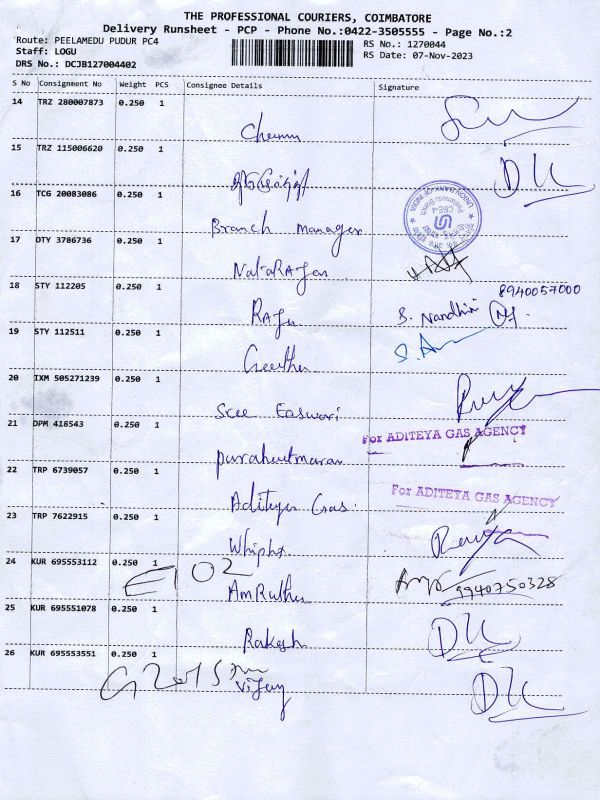 THE PROFESSIONAL COURIERS, COIMBATORE
Delivery Runsheet - PCP - Phone No.:0422-3505555 - Page No.:2
Route: PEELAMEDU PUDUR PC4
RS No.: 1270044
Staff: LOGU
RS Date: 07-Nov-2023
DRS No.: DCJB127004402
S No Consignment No Weight PCS Consignee Details Signature
14 TRZ 280007873 0.250 1
15 TRZ 115006620 0.250 1
16 TCG 20083086 0.250 1
Branch Manager
UNION BANK OF INDIA
17 DTY 3786736 0.250 1
NataRAjan
18 STY 112205 0.250 1
8940057000
RAju S. Nandhini
19 STY 112511 0.250 1
Geetha
20 IXM 505271239 0.250 1
Sree Easwari
21 DPM 418543 0.250 1
For ADITEYA GAS AGENCY
22 TRP 6739057 0.250 1
Aditeya Gas.
For ADITEYA GAS AGENCY
23 TRP 7622915 0.250 1
24 KUR 695553112 0.250 1
E102
AmRutha
9940750328
25 KUR 695551078 0.250 1
Rakesh
26 KUR 695553551 0.250 1
Vijay